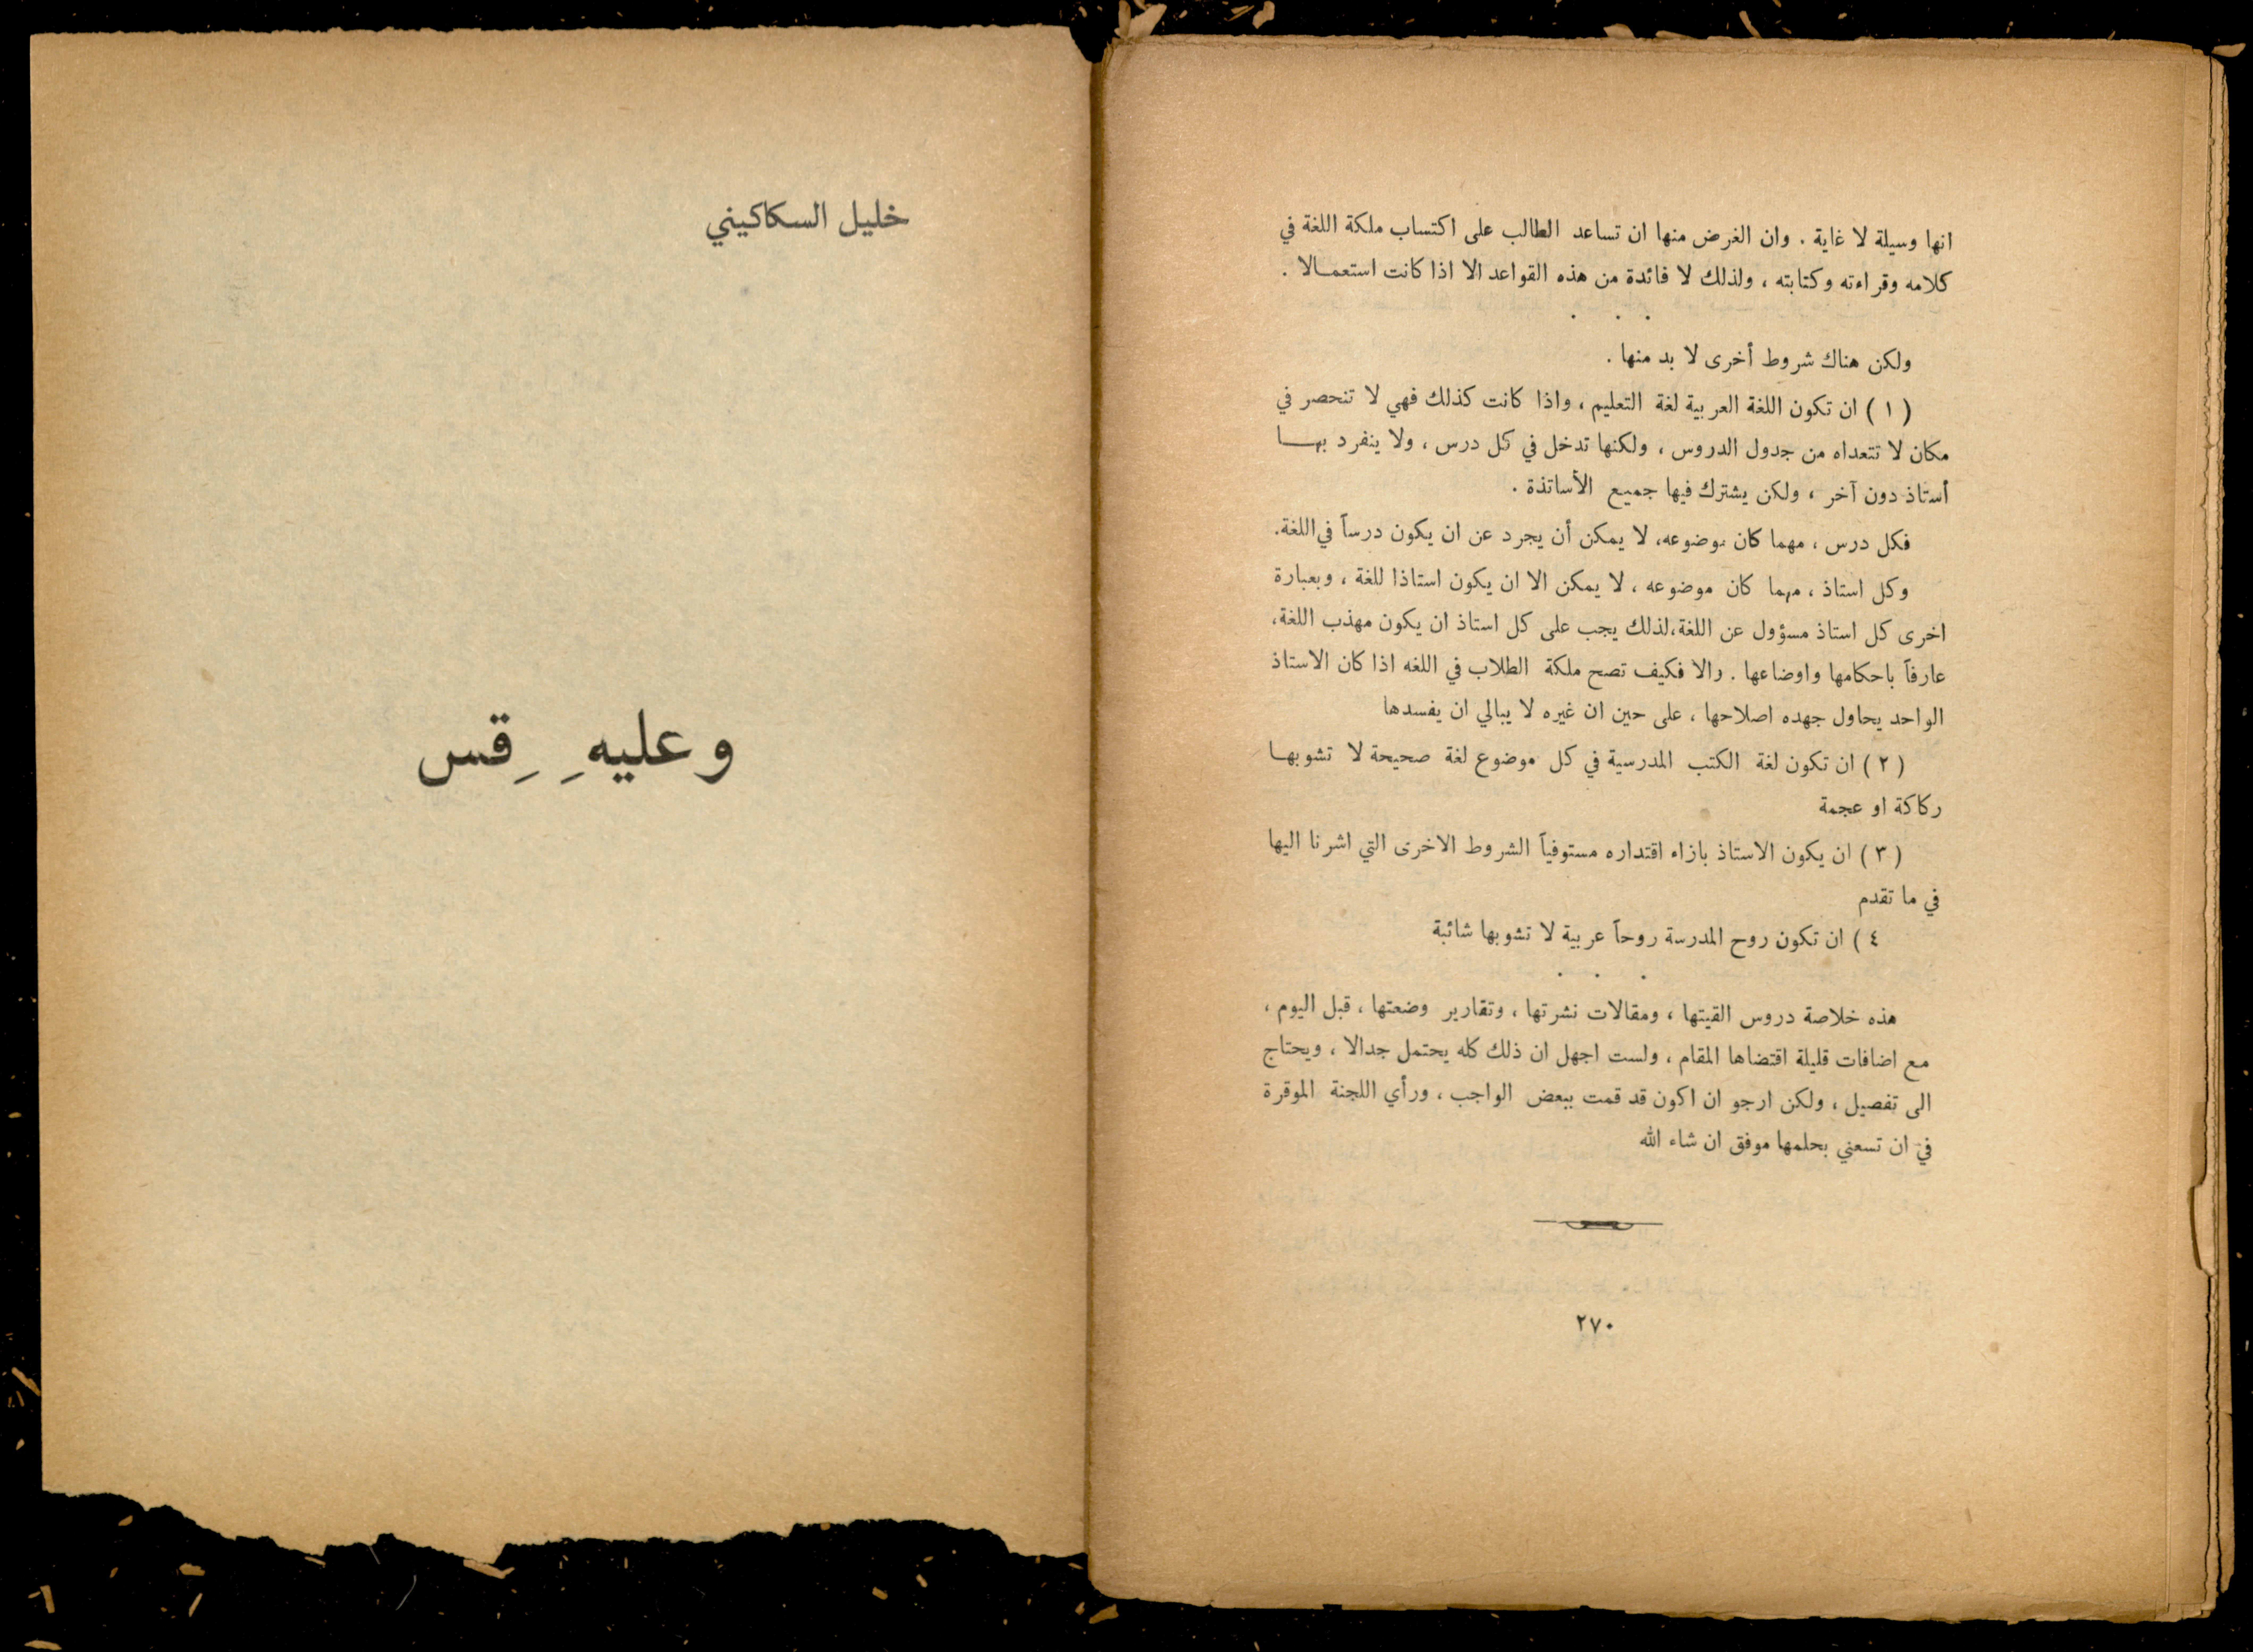 انها وسيلة لا غاية . وان الغرض منها ان تساعد الطالب على اكتساب ملكة اللغة في
كلامه وقراءته وكتابته ، ولذلك لا فائدة من هذه القواعد الا اذا كانت استعمـالا .
. . .
ولكن هناك شروط أخرى لا بد منها .
( ١ ) ان تكون اللغة العربية لغة التعليم ، واذا كانت كذلك فهي لا تنحصر في
مكان لا تتعداه من جدول الدروس ، ولكنها تدخل في كل درس ، ولا ينفرد بهـــا
أستاذ دون آخر ، ولكن يشترك فيها جميع الأساتذة .
فكل درس ، مهما كان موضوعه، لا يمكن أن يجرد عن ان يكون درساً في اللغة.
وكل استاذ ، مهما كان موضوعه ، لا يمكن الا ان يكون استاذا للغة ، وبعبارة
اخرى كل استاذ مسؤول عن اللغة،لذلك يجب على كل استاذ ان يكون مهذب اللغة،
عارفاً باحكامها واوضاعها . والا فكيف تصح ملكة الطلاب في اللغه اذا كان الاستاذ
الواحد يحاول جهده اصلاحها ، على حين ان غيره لا يبالي ان يفسدها
( ٢ ) ان تكون لغة الكتب المدرسية في كل موضوع لغة صحيحة لا تشوبهـا
ركاكة او عجمة
( ٣ ) ان يكون الاستاذ بازاء اقتداره مستوفياً الشروط الاخرى التي اشرنا اليها
في ما تقدم
٤ ) ان تكون روح المدرسة روحاً عربية لا تشوبها شائبة
. . .
هذه خلاصة دروس القيتها ، ومقالات نشرتها ، وتقارير وضعتها ، قبل اليوم ،
مع اضافات قليلة اقتضاها المقام ، ولست اجهل ان ذلك كله يحتمل جدالا ، ويحتاج
الى تفصيل ، ولكن ارجو ان اكون قد قمت ببعض الواجب ، ورأي اللجنة الموقرة
في ان تسعني بحلمها موفق ان شاء الله
٢٧٠
خليل السكاكيني
وعليهِ قِس